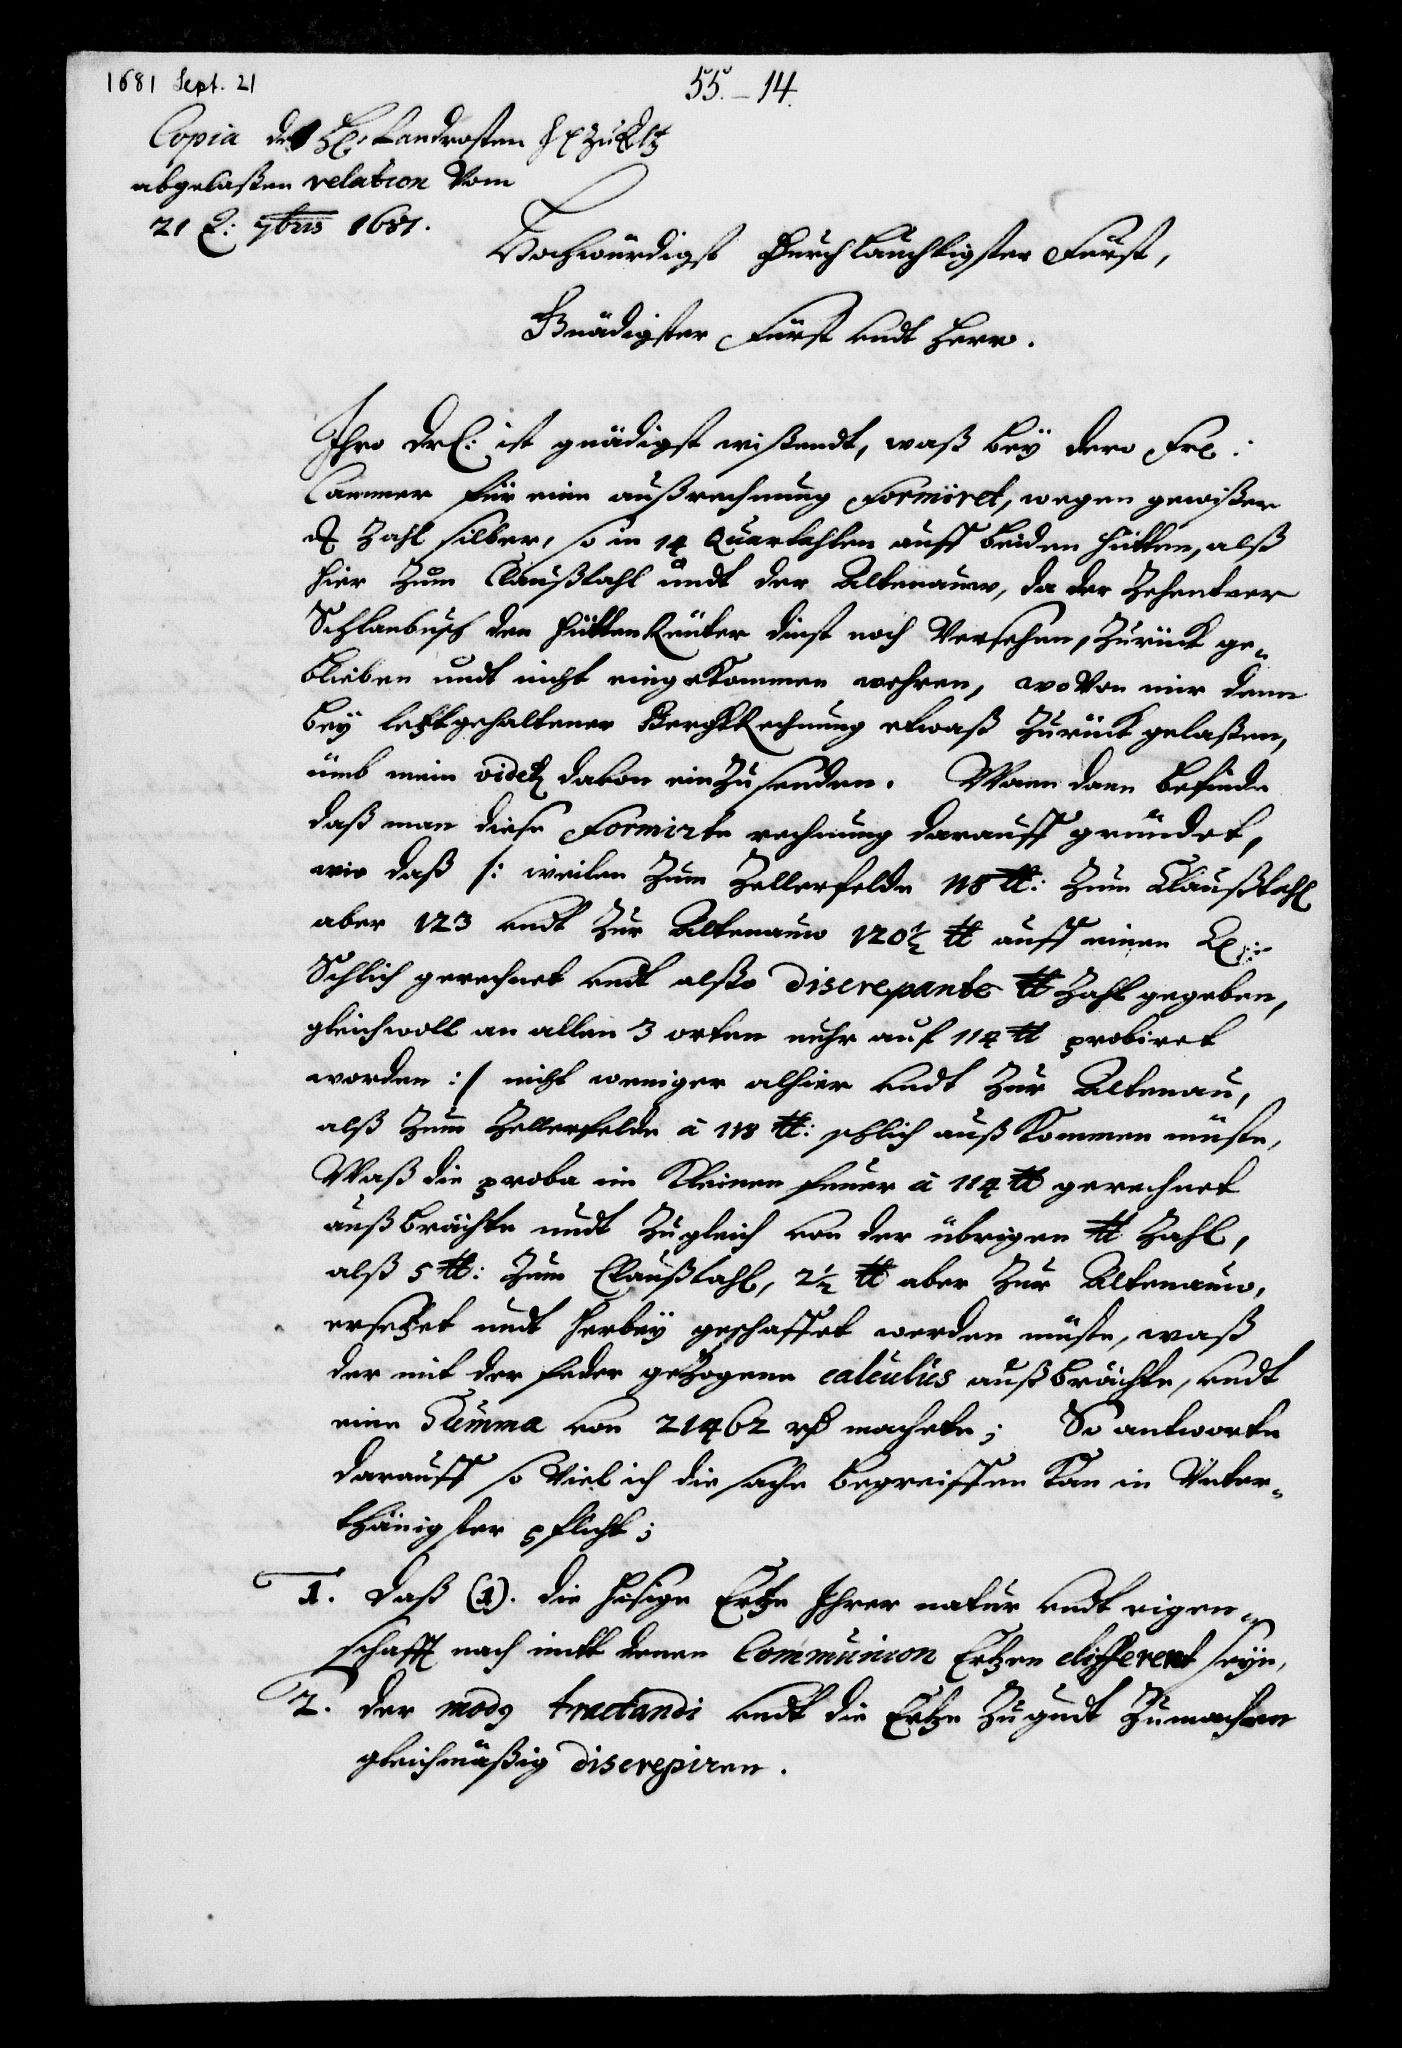 1681 Sept. 21
55.-14.
Copia des H: Landrosten
abgelaßen relation vom
21 t: 7bris 1681.
Hochwürdigst Durchläuchtigster Fürst,
Gnädigster Fürst undt Herr.
Ihro Drl: ist gnädigst wißendt, waß bey dero Frl:
Cammer für eine außrechnung Formiret, wegen gewißer
Zahl silber, so in 14 Quartahlen auff beiden Hütten, alß
hier Zum Claußtahl undt der Altenauw, da der Zehentner
Schlanbusch den HüttenReuter dinst noch Versehen, Zurück ge-
blieben undt nicht eingekommen wehren, wovon mir dann
bey letztgehaltener BergkRechnung etwaß Zurück gelaßen,
ümb mein davon einZusenden. Wann dann befinde
daß man diese Formirte rechnung darauff gründet,
wie daß /: weilen Zum Zellerfelde 118 ℔: Zum Claußtahl
aber 123 undt Zur Altenauw 120½ ℔ auff einen Ct:
Schlich gerechnet undt alßo discrepante ℔ Zahl gegeben,
gleichwoll an allen 3 orten nuhr auf 114 ℔ probiret
worden :/ nicht weniger alhier undt Zur Altenau,
alß Zum Zellerfelde à 118 ℔: schlich auß Kommen müste,
Waß die proba im Kleinen feuer à 114 ℔ gerechnet
außbrächte undt Zugleich von der übrigen ℔ Zahl,
alß 5 ℔: Zum Claußtahl, 2½ ℔ aber Zur Altenauw,
ersetzet undt herbey geschaffet werden müste, waß
der mit der feder gezogene calculus außbrächte, undt
eine Summa von 21462 rß machete; So antworte
darauff so Viel ich die sache begreiffen Kan in Unter-
thänigster pflicht;
1. Daß (1). die hisige Ertze Ihrer natur undt eigen-
schafft nach mitt denen Communion Ertzen different seyn,
2. der modg tractandi undt die Ertze Zugudt Zumachen
gleichmäßig discrepiren.